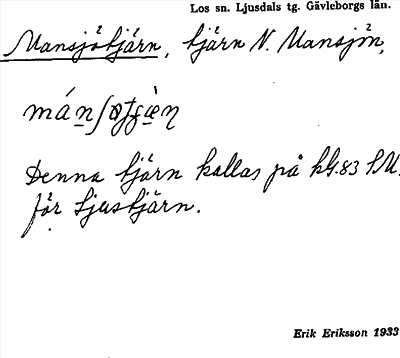 Los sn. Ljusdals tg. Gävleborgs län.
Mansjötjärn, tjärn N. Mansjön,
Denna tjärn kallas på kG.83 SU.
för Ljustjärn.
Erik Eriksson 1933